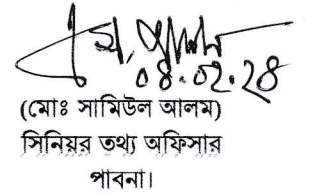 ০৪.০২.২৪
(মোঃ সামিউল আলম)
সিনিয়র তথ্য অফিসার
পাবনা।